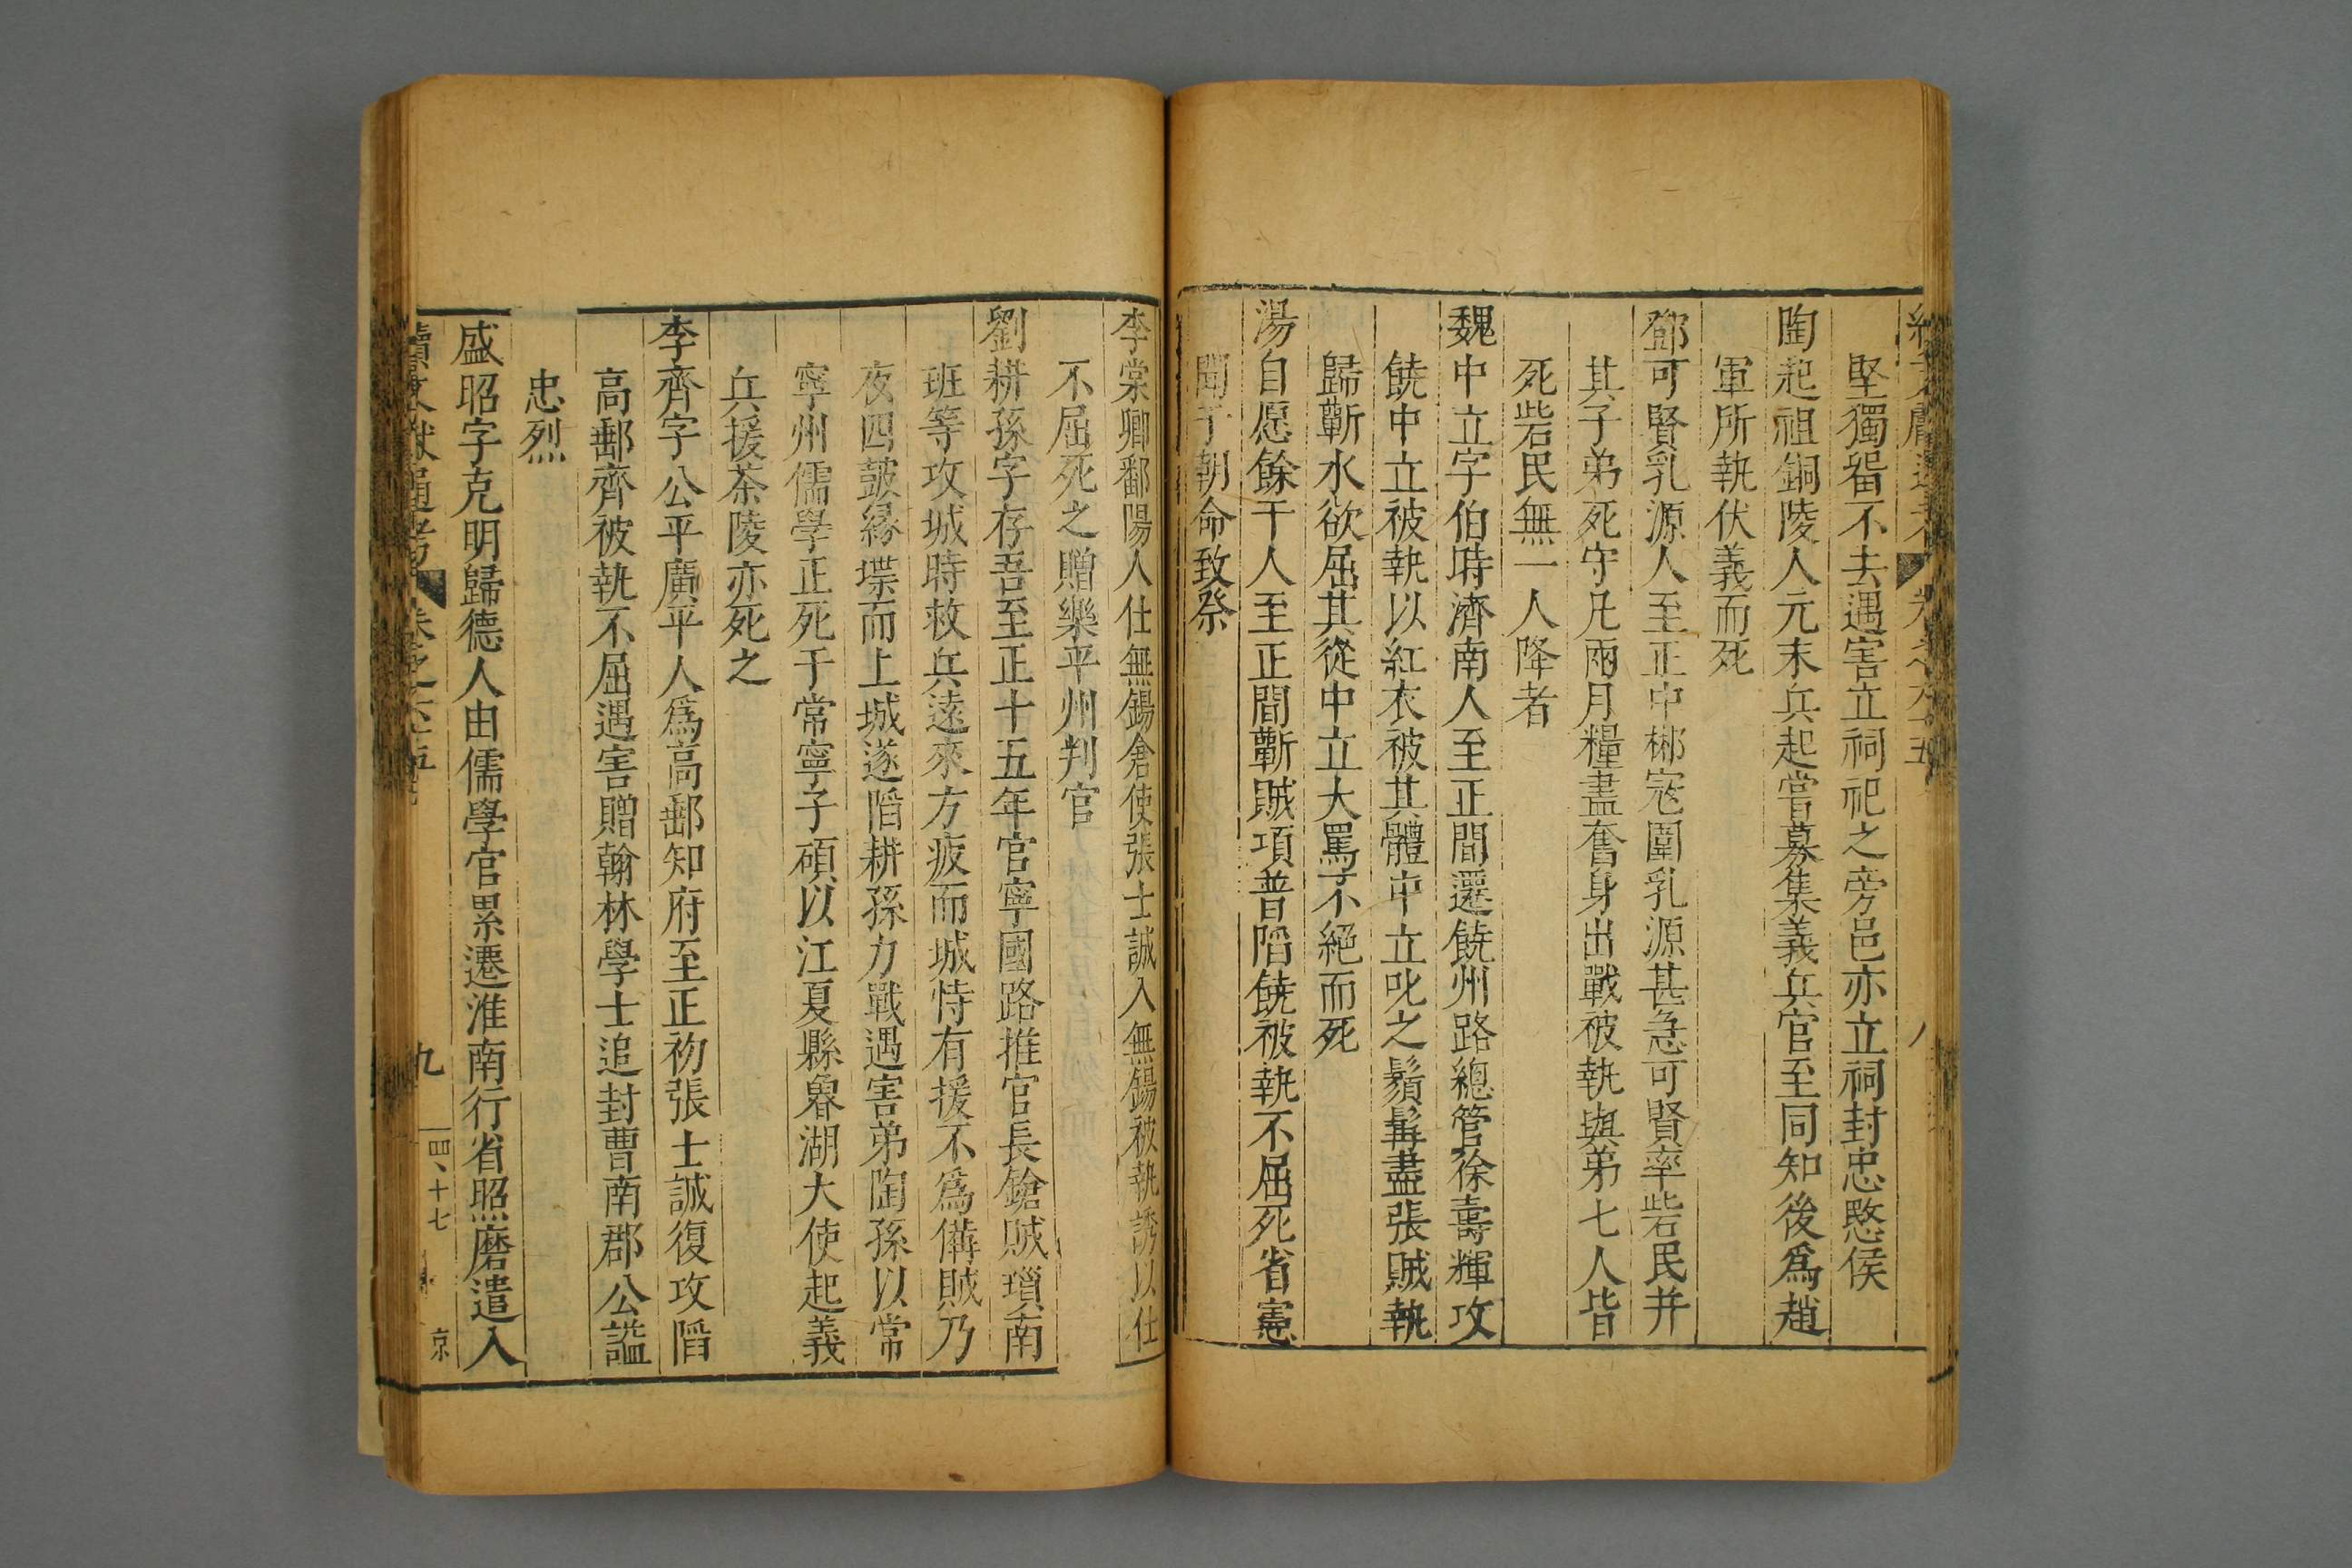 堅獨畱不去遇害立祠祀之旁邑亦立祠封忠愍侯
陶起祖銅陵人元末兵起嘗募集義兵官至同知後爲趙
軍所執伏義而死
鄧可賢乳源人至正中郴寇圍乳源甚急可賢率砦民并
其子弟死守凡兩月糧盡奮身出戰被執與弟七人皆
死砦民無一人降者
魏中立字伯時濟南人至正間遷饒州路總管徐壽輝攻
饒中立被執以紅衣被其體中立叱之鬚髯盡張賊執
歸蘄水欲屈其從中立大罵不絕而死
湯自愿餘干人至正間蘄賊項普陷饒被執不屈死省憲
聞于朝命致祭
李棠卿鄱陽人仕無錫倉使張士誠入無錫被執誘以仕
不屈死之贈樂平州判官
劉耕孫字存吾至正十五年官寧國路推官長鎗賊瑣南
班等攻城時救兵遠來方疲而城恃有援不爲備賊乃
夜四鼓緣堞而上城遂陷耕孫力戰遇害弟陶孫以常
寧州儒學正死于常寧子碩以江夏縣魯湖大使起義
兵援茶陵亦死之
李齊字公平廣平人爲高郵知府至正初張士誠復攻陷
高郵齊被執不屈遇害贈翰林學士追封曹南郡公謚
忠烈
盛昭字克明歸德人由儒學官累遷淮南行省照磨遣入
續文獻通考 卷之六十五 九 四、十七 京